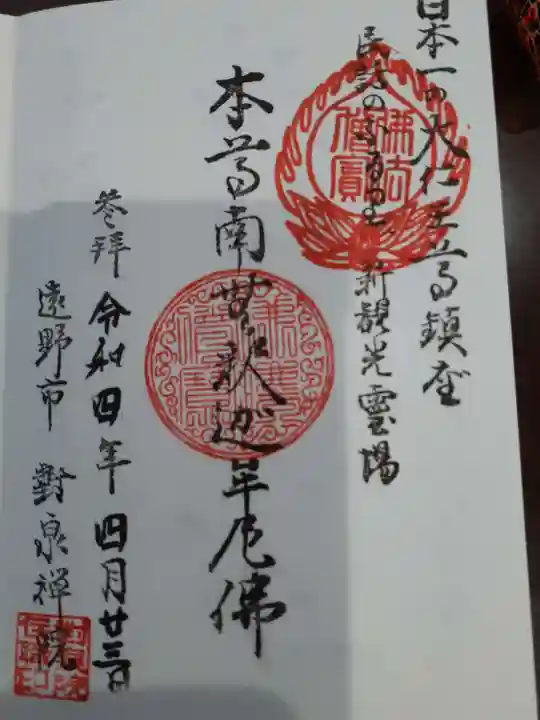 日本一の大仁王尊鎮座
民話のふるさと 新観光霊場
本尊南無釈迦牟尼佛
参拝 令和四年四月廿三日
遠野市 對泉禅院
佛法僧寳